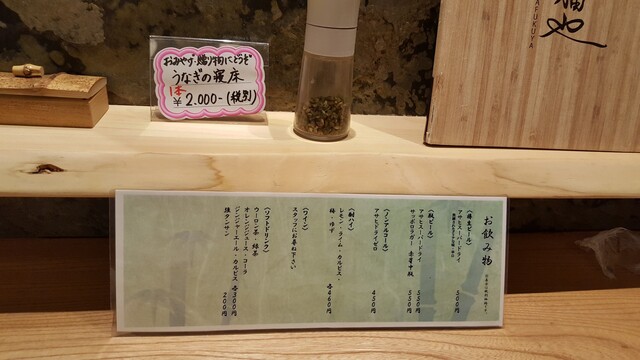 おみやげ・贈り物にどうぞ
うなぎの寝床
1本
¥2.000-(税別)
AFUKUYA
お飲み物
〈樽生ビール〉
アサヒスーパードライ
500円
〈瓶ビール〉
アサヒスーパードライ 550円
サッポロラガー 赤星中瓶 550円
〈ノンアルコール〉
アサヒドライゼロ 450円
〈酎ハイ〉
レモン・ライム・カルピス・
梅・ゆず 各460円
〈ワイン〉
スタッフにお尋ね下さい
〈ソフトドリンク〉
ウーロン茶・緑茶
オレンジジュース・コーラ
ジンジャーエール・カルピス 各300円
強タンサン 200円